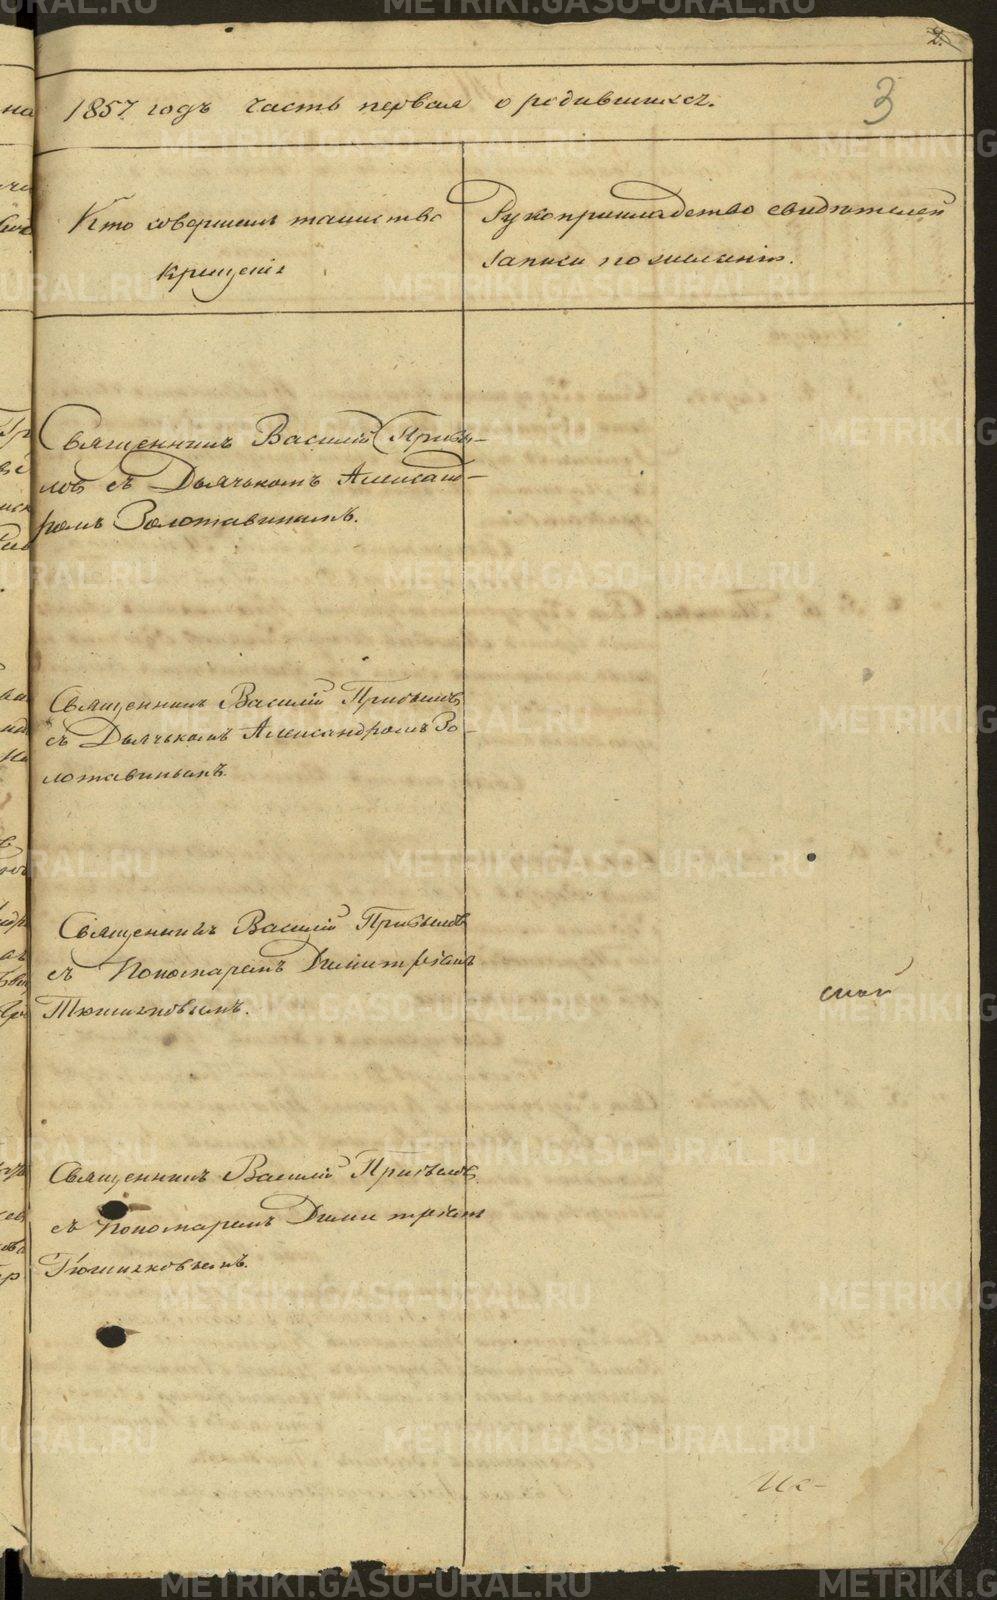 2.
3
1857 годъ часть первая о родившихся.
Кто совершилъ таинство
крещенія
Рукоприкладство свидѣтелей
записи по желанію.
Священникъ Василій Прибы-
лов съ Дьячькомъ Алексан-
ромъ Золотавинымъ.
Священникъ Василій Прибыловъ
съ Дьячькомъ Александромъ Зо-
лотавинымъ.
Священникъ Василій Прибыловъ
съ Пономаремъ Димитріемъ
Тюшняковымъ.
Священникъ Василій Прибыловъ
съ Пономаремъ Димитріемъ
Тюшняковымъ.
METRIKI.GASO-URAL.RU